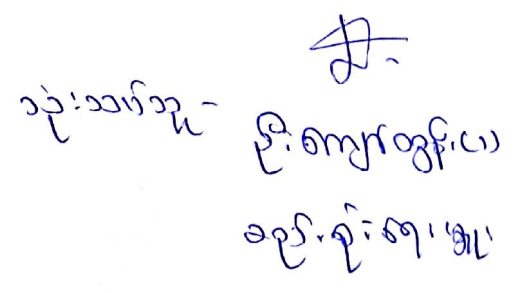 သုံးသပ်သူ-
ဦးကျော်ထွန်း(၁)
စည်းရုံးရေးမှူး